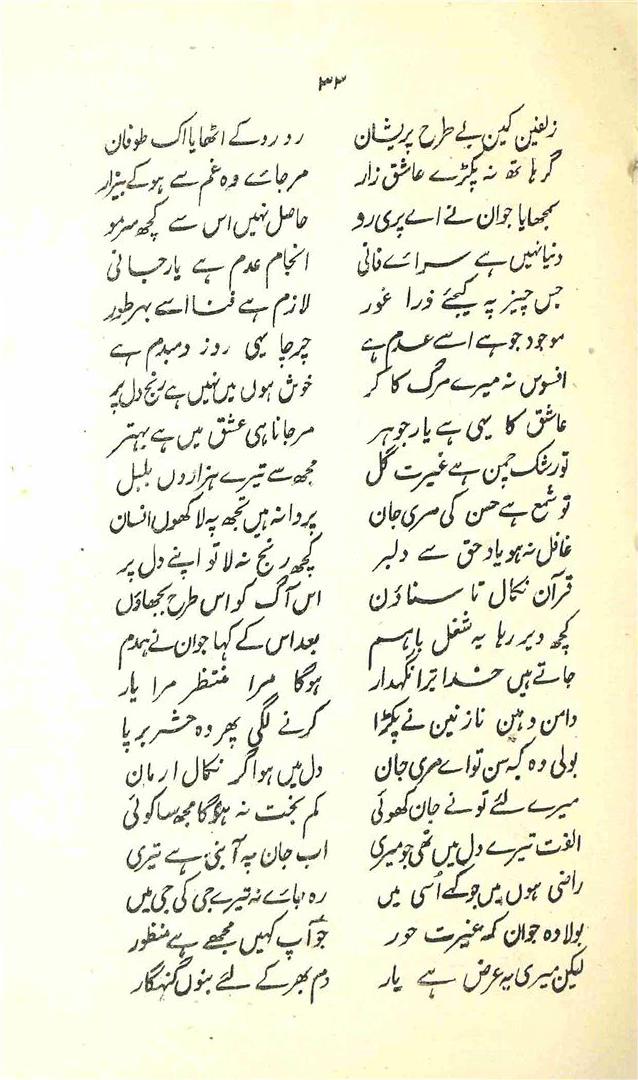 ۳۳
زلفیں کیں بے طرح پریشان رو رو کے اٹھایا اک طوفان
گر ہاتھ نہ پکڑے عاشق زار مرجائے وہ غم سے ہو کے بیزار
سمجھایا جوان نے اے پری رو حاصل نہیں اس سے کچھ سرمو
دنیا نہیں ہے سرائے فانی انجام عدم ہے یار جانی
جس چیز پہ کیجئے ذرا غور لازم ہے فنا اسے بہر طور
موجود جو ہے اسے عدم ہے چرچا یہی روز دمبدم ہے
افسوس نہ میرے مرگ کا کر خوش ہوں میں نہیں ہے رنج دل پر
عاشق کا یہی ہے یار جوہر مرجانا ہی عشق میں ہے بہتر
تو رشک چمن ہے غیرت گل مجھ سے تیرے ہزاروں بلبل
تو شمع ہے حسن کی مری جان پروانہ ہیں تجھ پہ لاکھوں انسان
غافل نہ ہو یاد حق سے دلبر کچھ رنج نہ لا تو اپنے دل پر
قرآن نکال تا سناؤن اس آگ کو اس طرح بجھاؤں
کچھ دیر رہا یہ شغل باہم بعد اس کے کہا جوان نے ہمدم
جاتے ہیں خدا ترا نگہدار ہوگا مرا منتظر مرا یار
دامن وہین نازنین نے پکڑا کرنے لگی پھر وہ حشر برپا
بولی وہ کہ سن تو اے مری جان دل میں ہو اگر نکال ارمان
میرے لئے تو نے جان کھوئی کم بخت نہ ہوگا مجھ سا کوئی
الفت تیرے دل میں تھی جو میری اب جان پہ آ بنی ہے تیری
راضی ہوں میں جو کہے اُسی میں رہ جائے نہ تیرے جی کی جی میں
بولا وہ جوان کہ غیرت حور جو آپ کہیں مجھے ہے منظور
لیکن میری یہ عرض ہے یار دم بھر کے لئے بنوں گنہگار